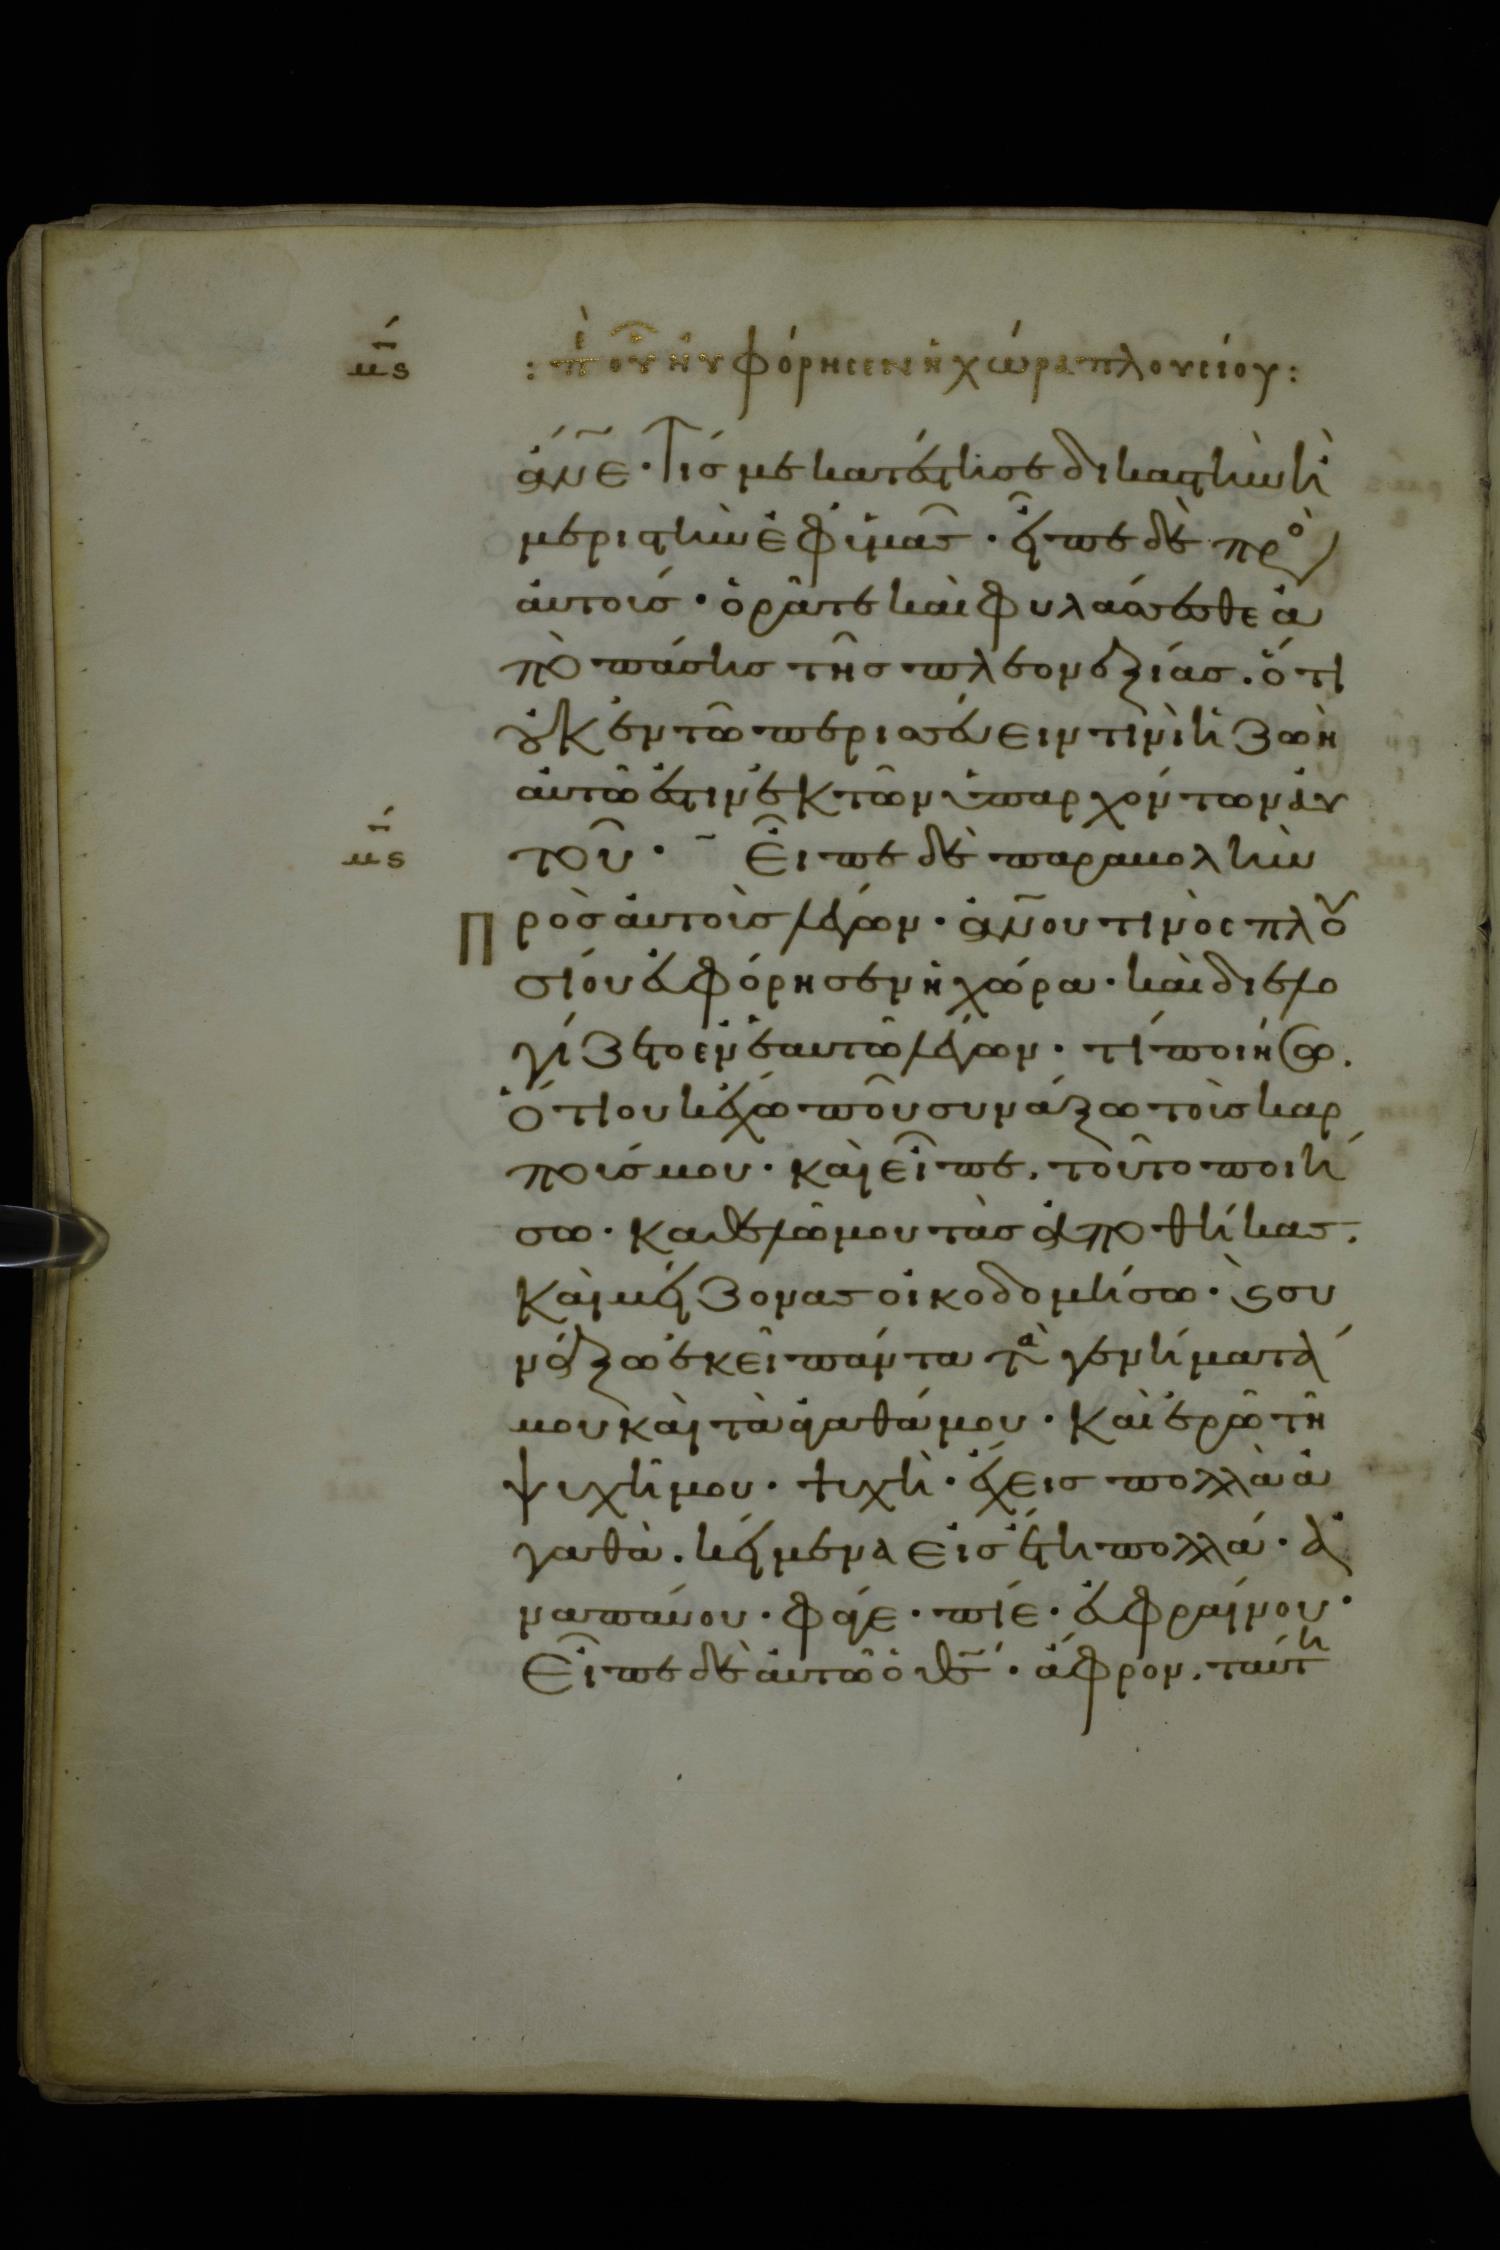 μ̅ς : πε οὗ ηὐφόρησεν ἡ χώρα πλουσίου :
ἄν̅ε · Τίς με κατέστησε δικαστὴν ἢ
μεριστὴν ἐφ ἡμᾶς · εἶπε δὲ πρὸ
αὐτοὺς · ὁρᾶτε καὶ φυλάσσεσθε ἀ
πὸ πάσης τῆς πλεονεξίας . ὅτι
οὐκ ἐν τῶ περισσεύειν τινὶ ἡ ζωὴ
αὐτῶ ἐστιν ἐκ τῶν ὑπαρχόντων αὐ
μ̅ς τοῦ · Εἶπε δὲ παραβολὴν
πρὸς αὐτοὺς λέγων · ἀν̅ου τινὸς πλου
σίου εὐφόρησεν ἡ χώρα · καὶ διελο
γίζετο ἐν ἑαυτῶ λέγων · τί ποιήσω .
ὅτι ουκ ἔχω ποῦ συνάξω τοὺς καρ
πούς μου · καὶ εἶπε . τοῦτο ποιή
σω · καθελῶ μου τὰς ἀποθήκας .
καὶ μείζονας οἰκοδομήσω · ϗ συ
νάξω ἐκεῖ πάντα τὰ γενήματά
μου καὶ τὰ ἀγαθά μου · καὶ ἐρῶ τῆ
ψυχῆ μου · ψυχὴ · ἔχεις πολλὰ ἀ
γαθὰ . κείμενα εἰς ἔτη πολλά · ἀ
ναπαύου · φάγε · πίε · εὐφραίνου ·
Εἶπε δὲ αὐτῶ ὁ θ̅ς · ἄφρον . ταύτη